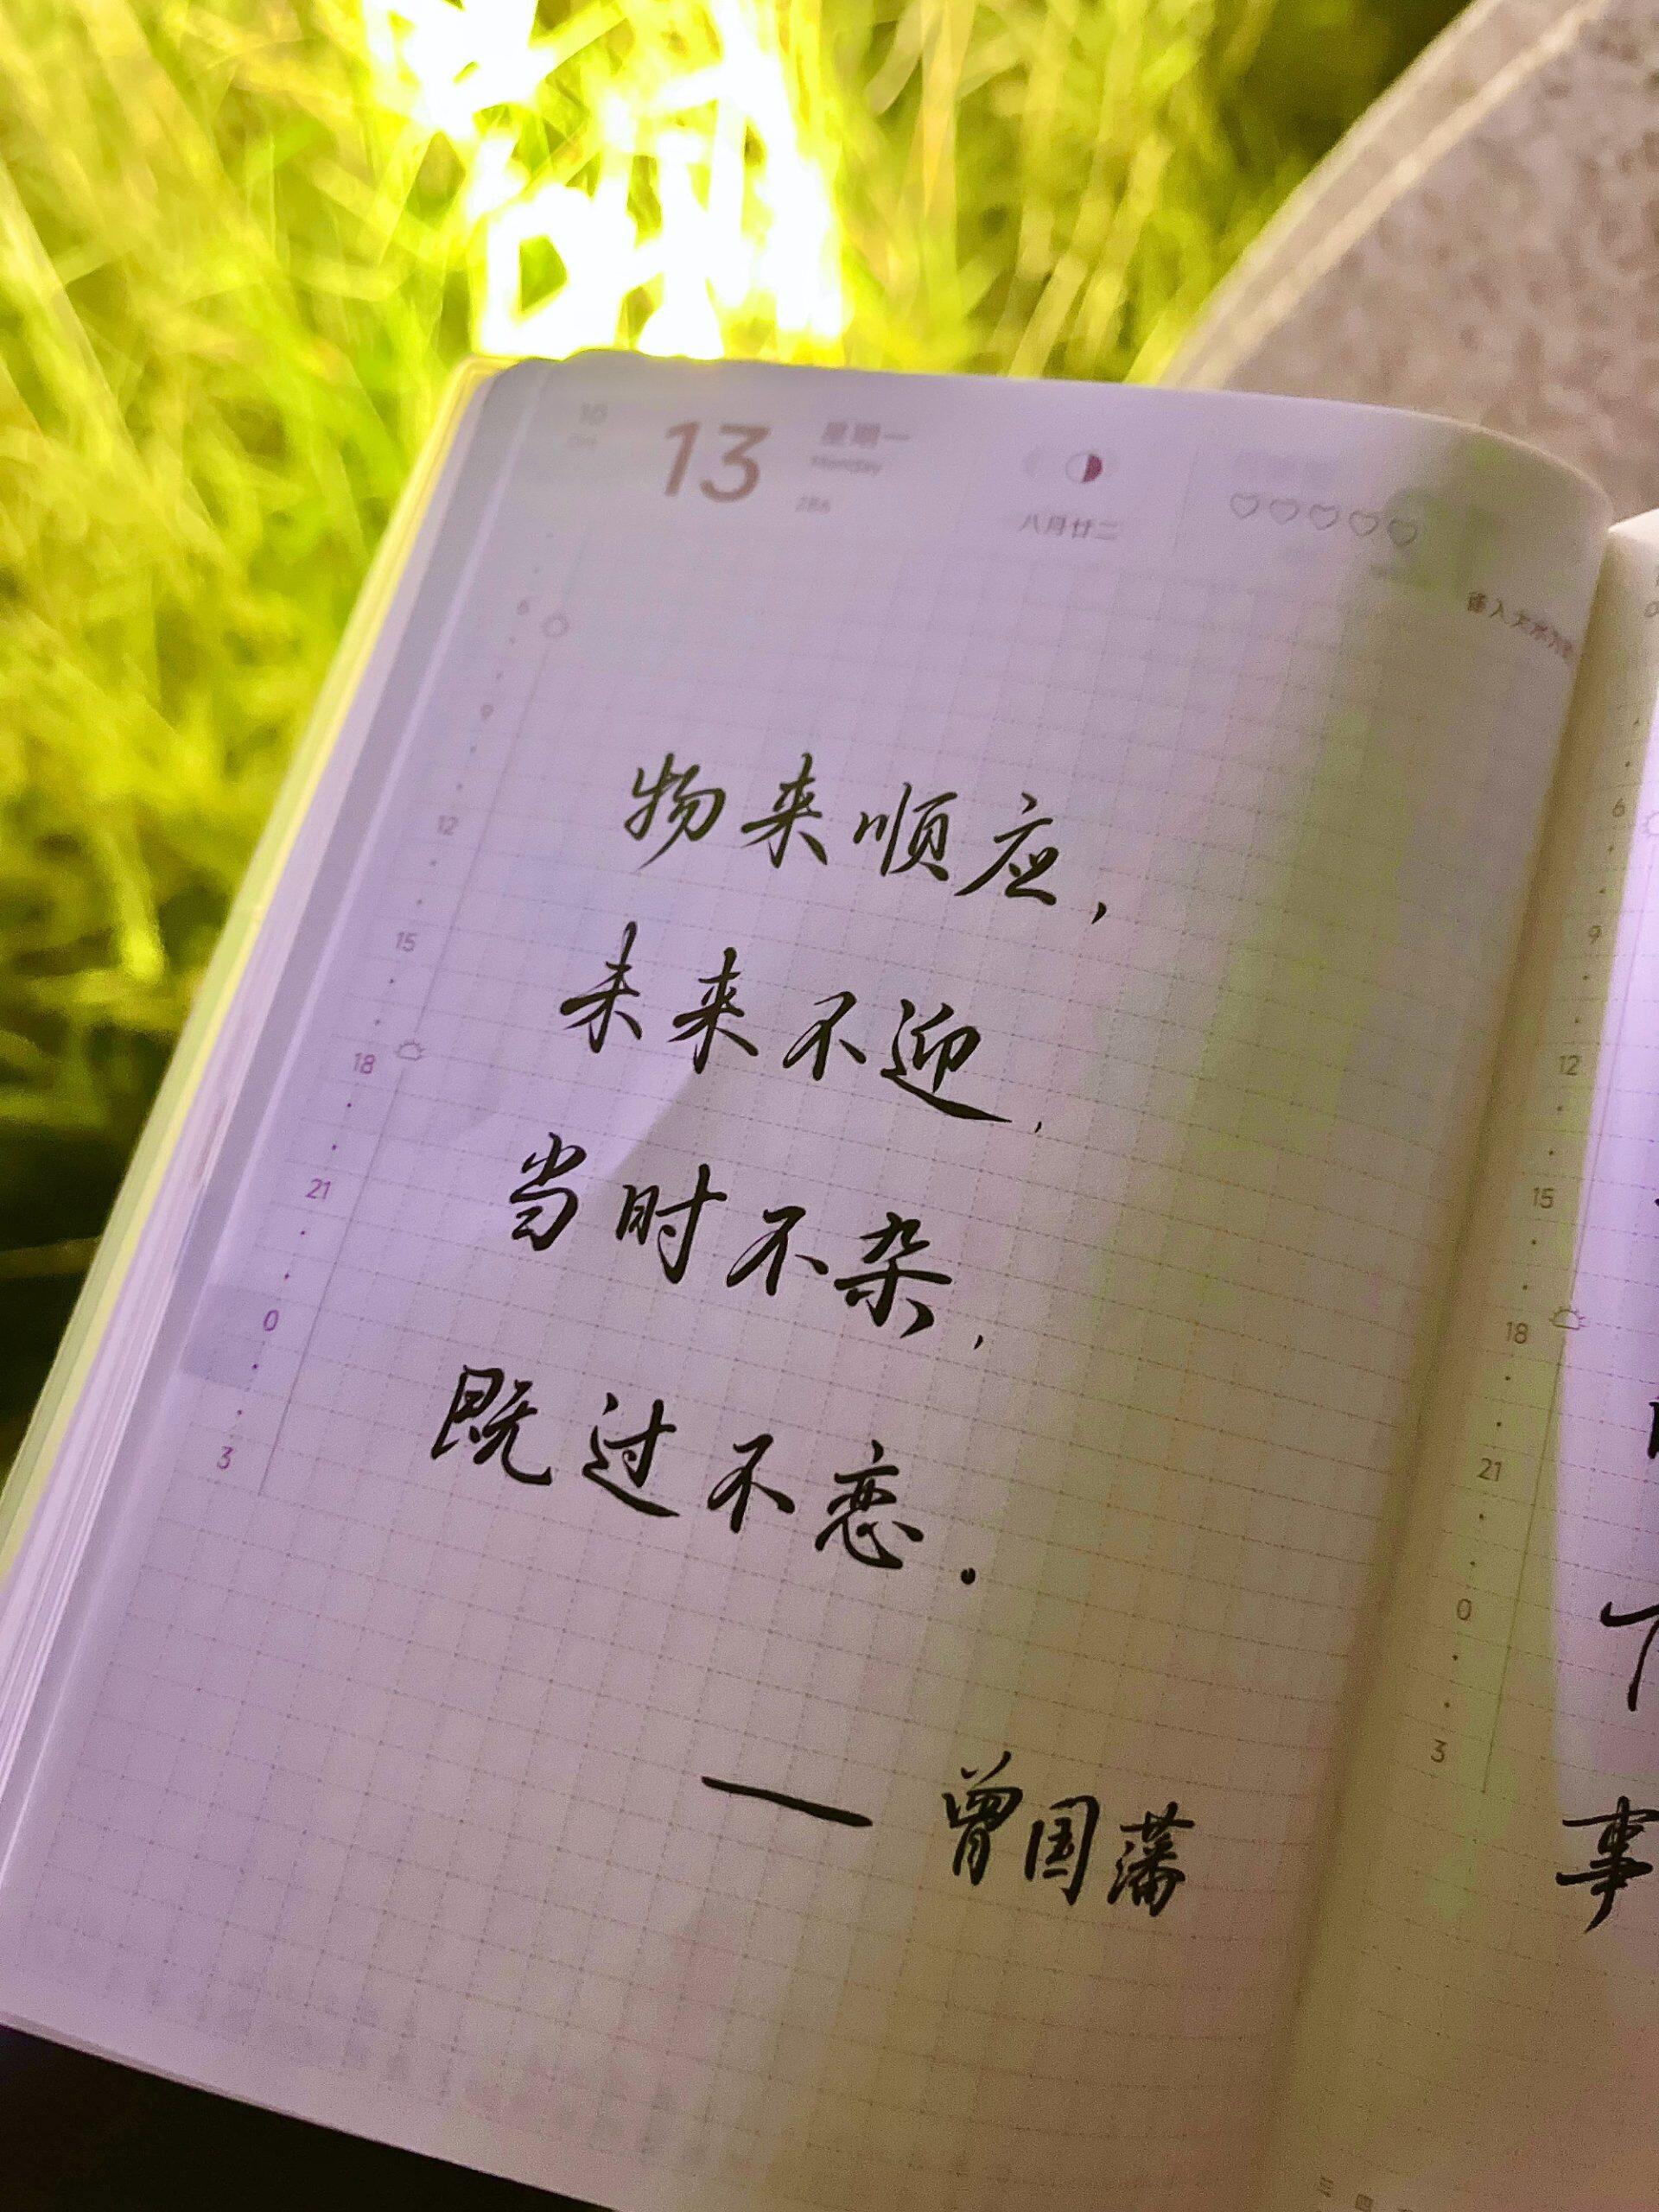 10
13
星期一
Monday
286
八月廿二
6
9
12
15
18
21
0
3
物来顺应，
未来不迎，
当时不杂，
既过不恋．
— 曾国藩
6
9
12
15
18
21
0
3
事